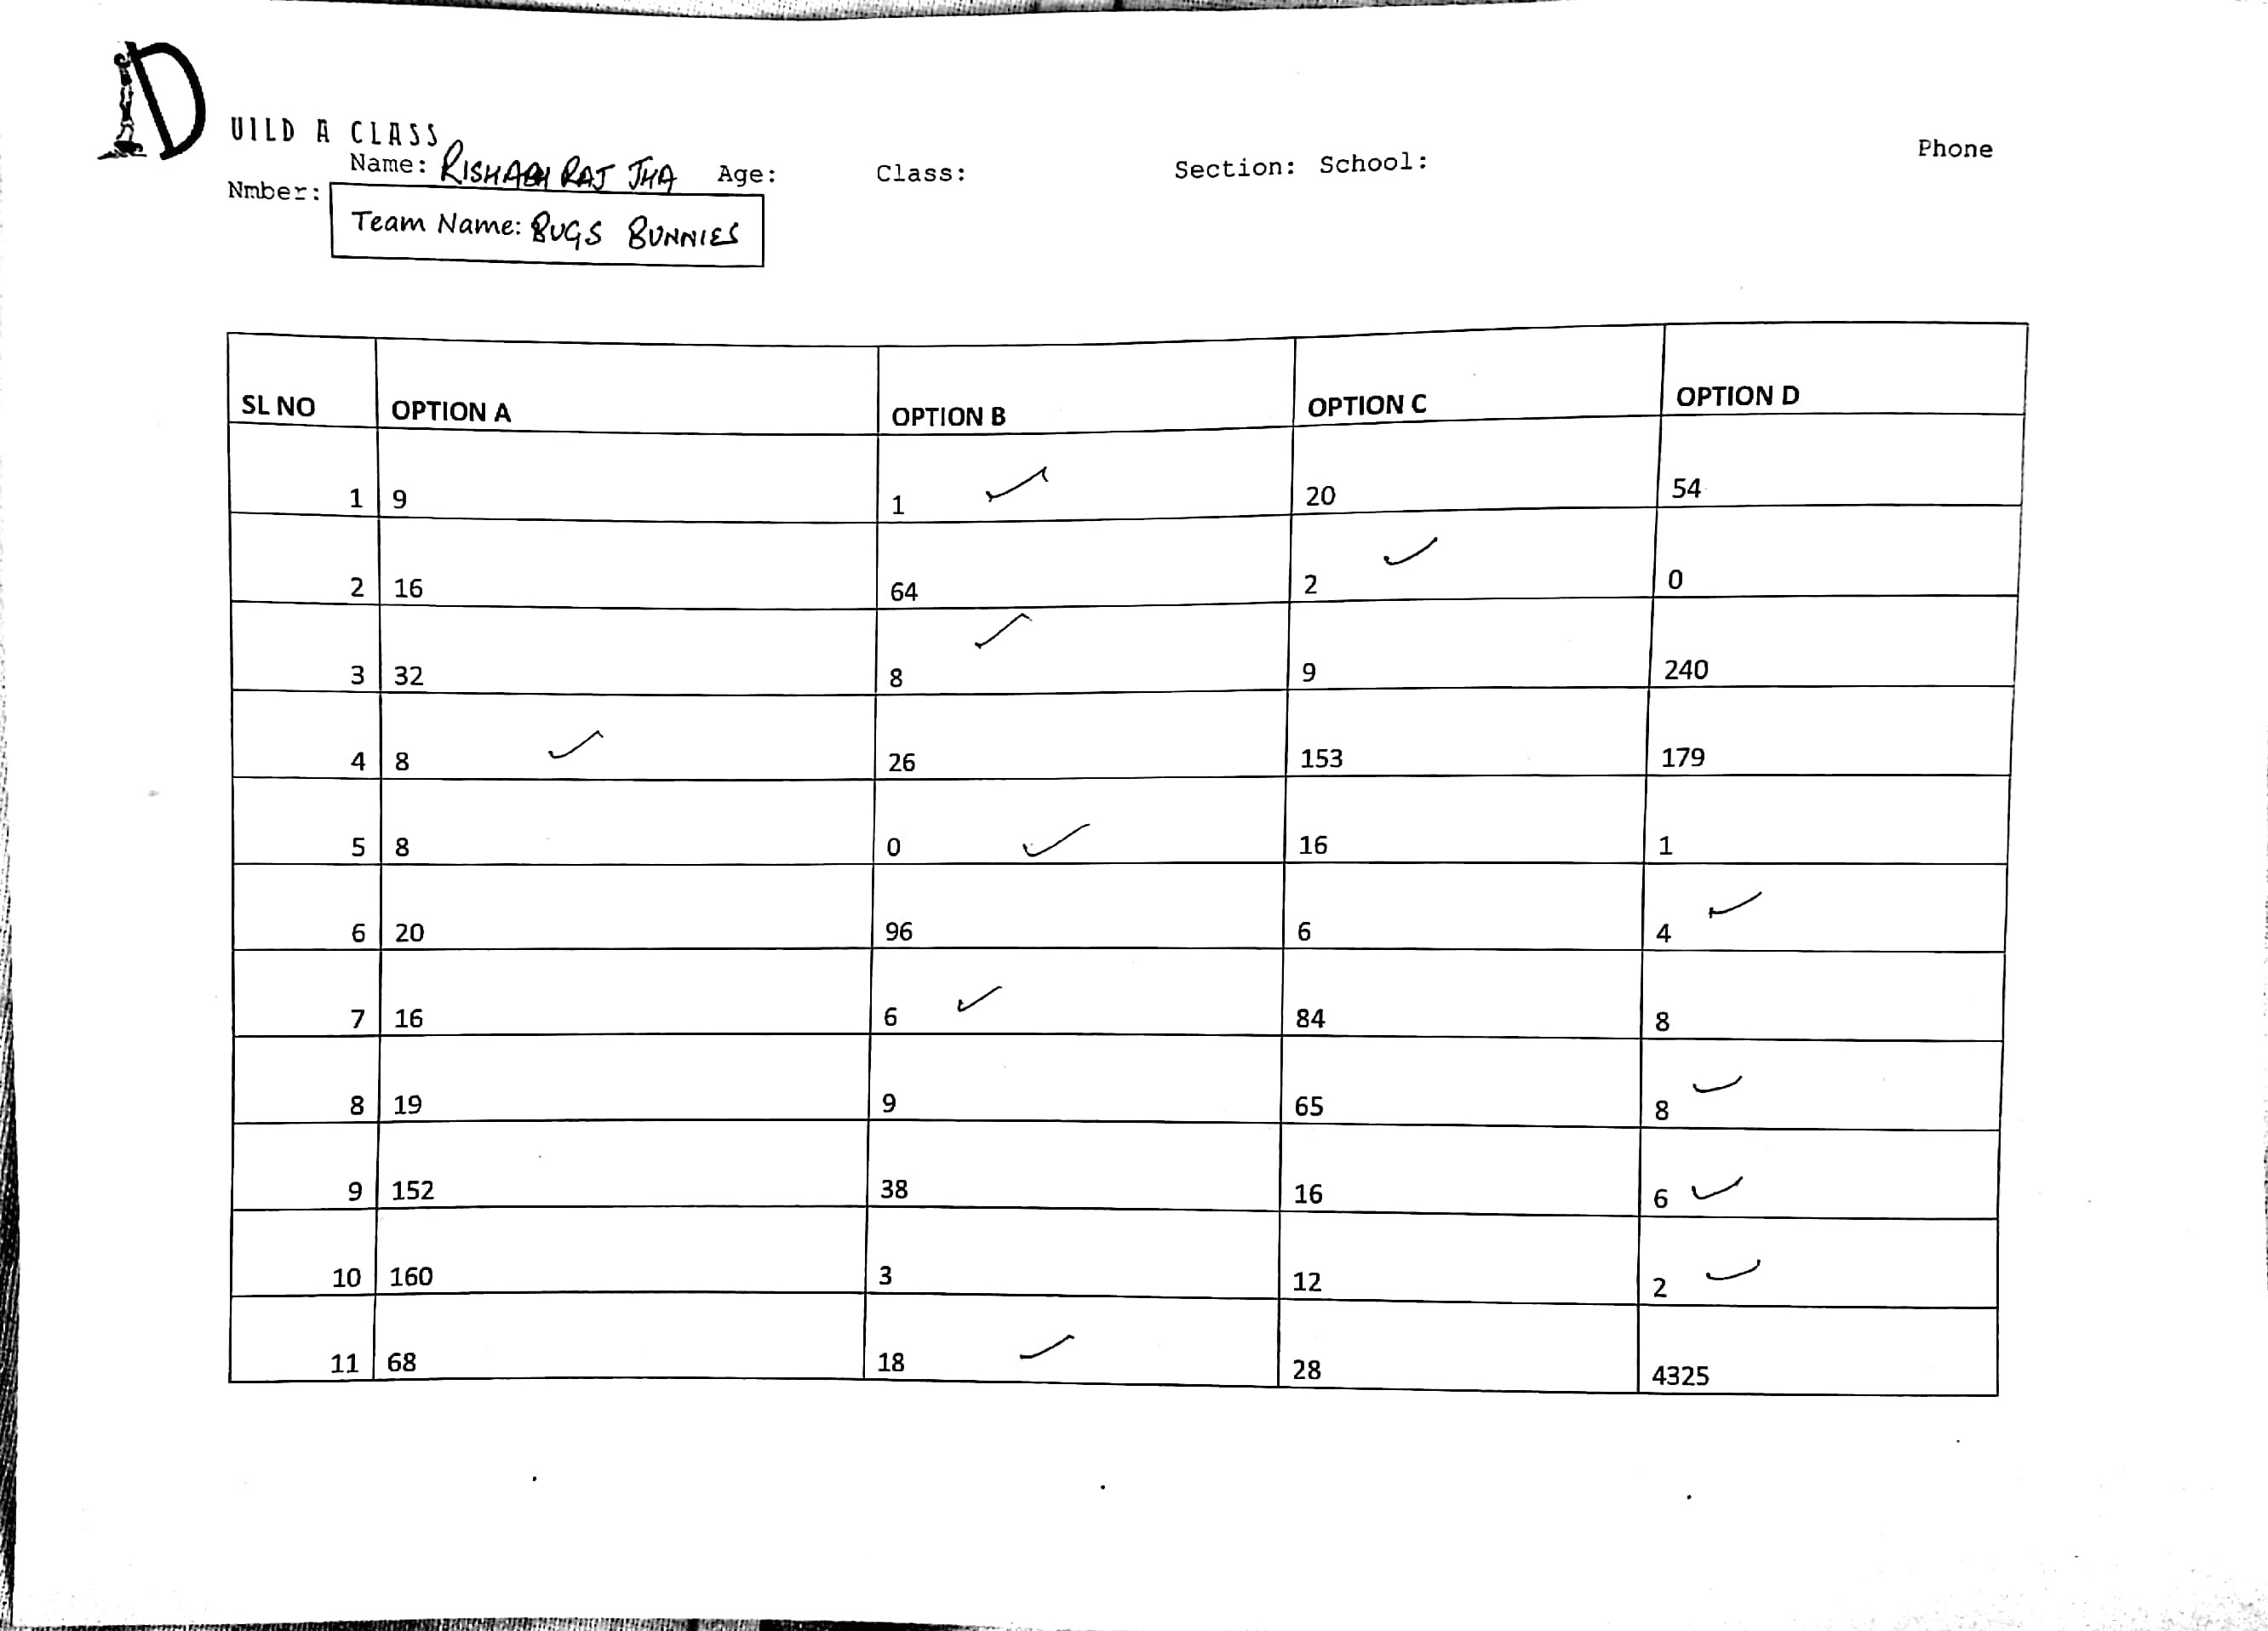 D UILD A CLASS
Name: RISHABH RAJ JHA Age: Class: Section: School: Phone
Nmber:
Team Name: BUGS BUNNIES
SL NO OPTION A OPTION B OPTION C OPTION D
1 9 1 ✓ 20 54
2 16 64 2 ✓ 0
3 32 8 ✓ 9 240
4 8 ✓ 26 153 179
5 8 0 ✓ 16 1
6 20 96 6 4 ✓
7 16 6 ✓ 84 8
8 19 9 65 8 ✓
9 152 38 16 6 ✓
10 160 3 12 2 ✓
11 68 18 ✓ 28 4325